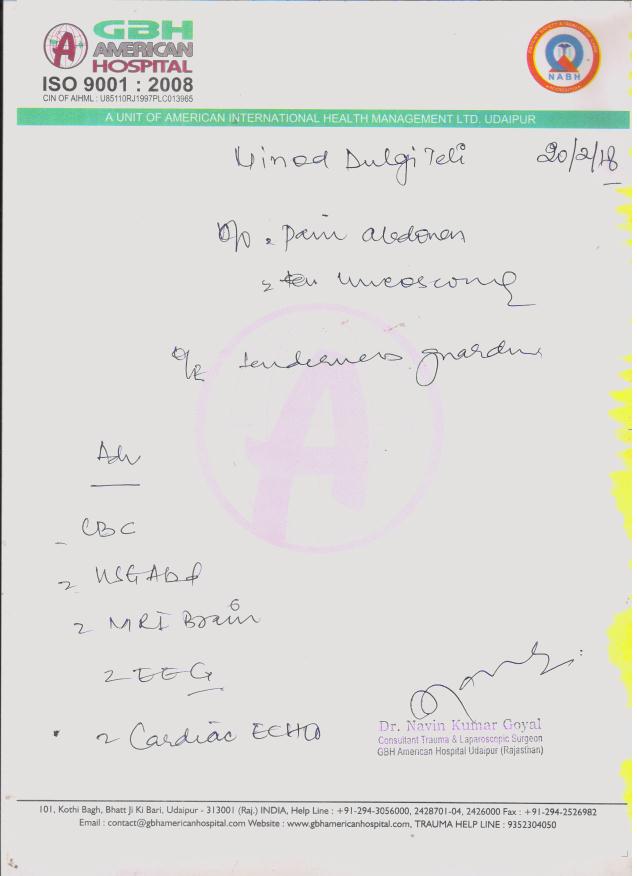 GBH
AMERICAN
HOSPITAL
ISO 9001 : 2008
CIN OF AIHML : U85110RJ1997PLC013965
NABH
A UNIT OF AMERICAN INTERNATIONAL HEALTH MANAGEMENT LTD. UDAIPUR
Vinod Dulgi Teli 20/2/18
Pain abdomen
O/E tenderness guarding
Adv
- CBC
- USG Abd
- MRI Brain
- EEG
- Cardiac ECHO
Dr. Navin Kumar Goyal
Consultant Trauma & Laparoscopic Surgeon
GBH American Hospital Udaipur (Rajasthan)
101, Kothi Bagh, Bhatt Ji Ki Bari, Udaipur - 313001 (Raj.) INDIA, Help Line : +91-294-3056000, 2428701-04, 2426000 Fax : +91-294-2526982
Email : contact@gbhamericanhospital.com Website : www.gbhamericanhospital.com, TRAUMA HELP LINE : 9352304050